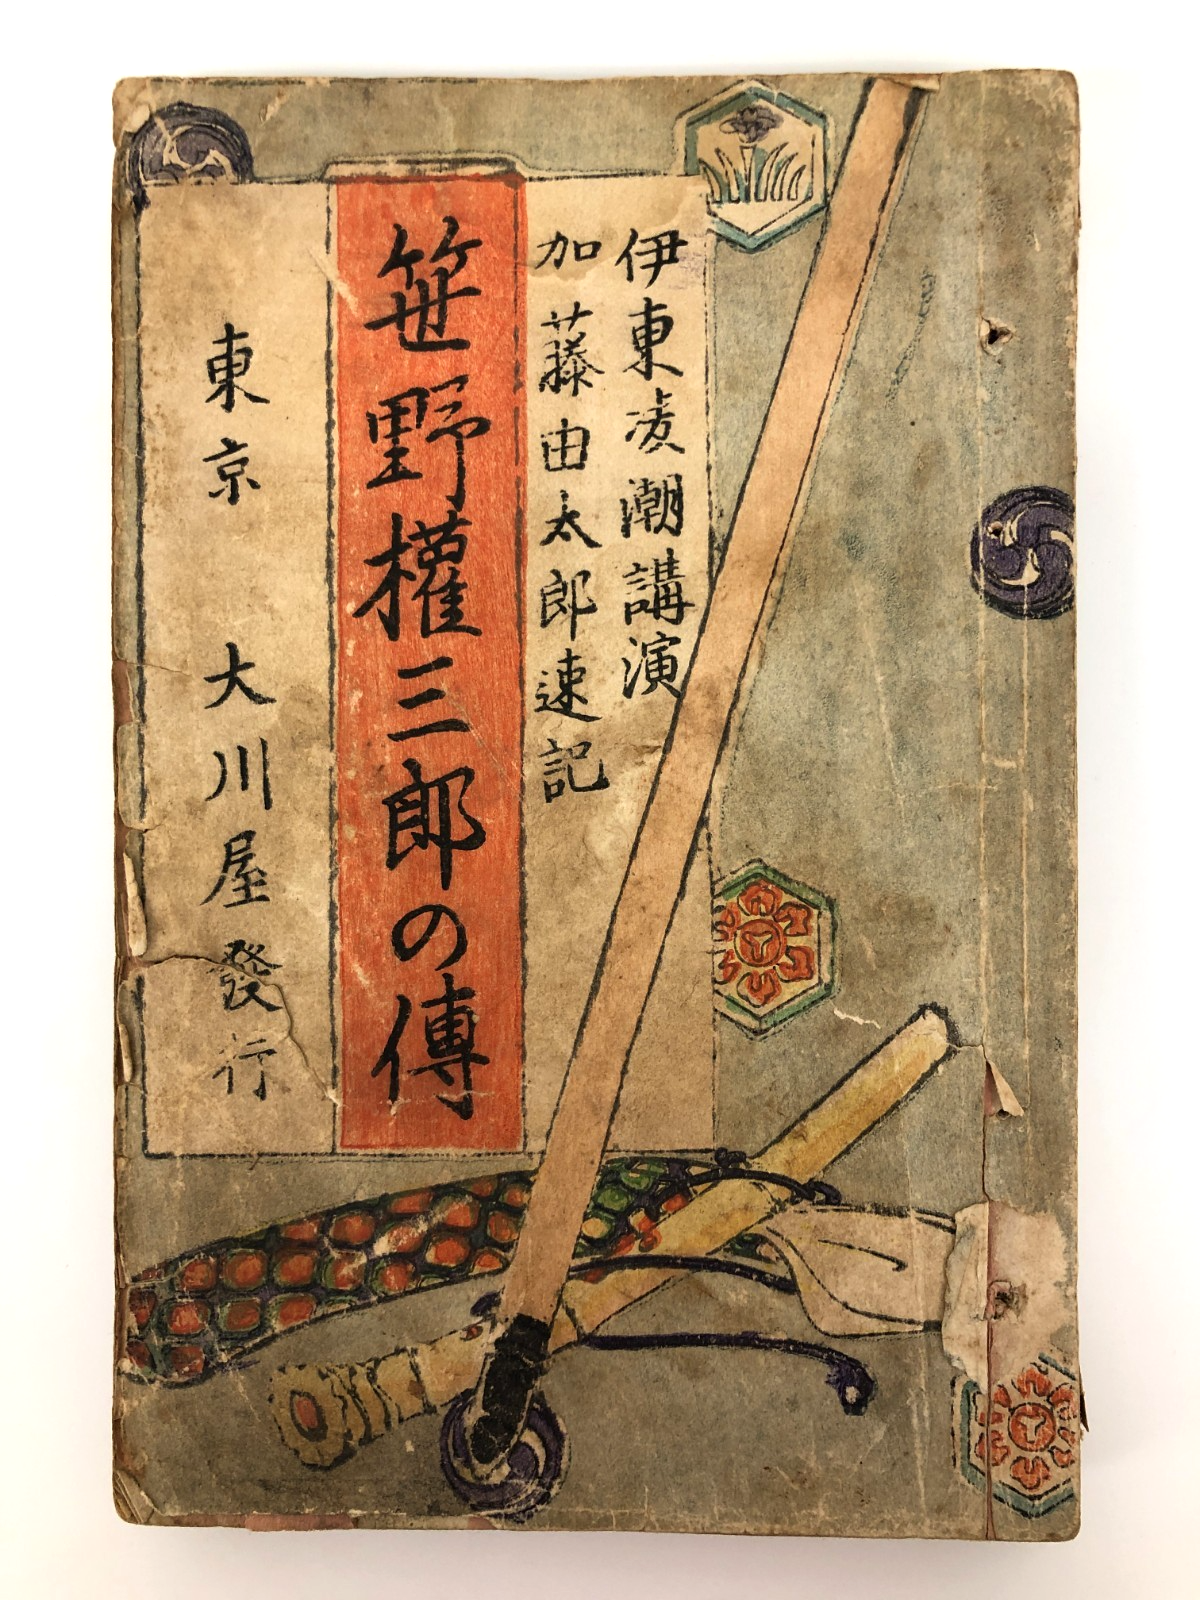 伊東凌潮講演
加藤由太郎速記
笹野權三郎の傳
東京 大川屋發行